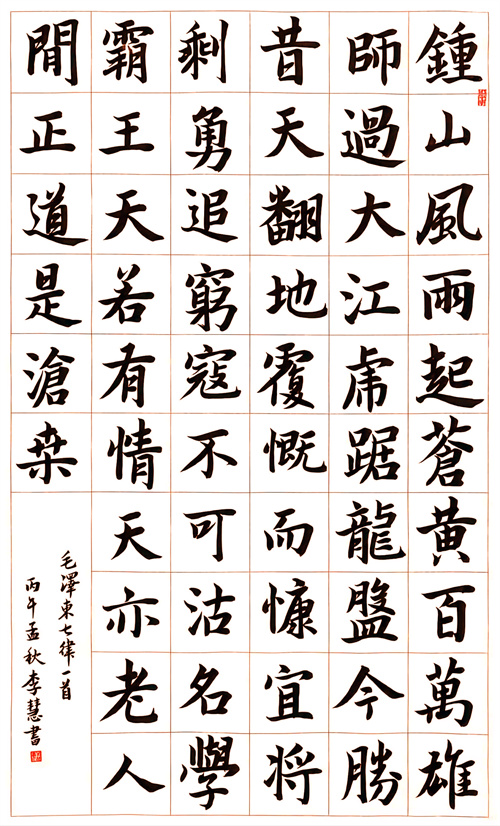 鍾山風雨起蒼黃百萬雄
師過大江虎踞龍盤今勝
昔天翻地覆慨而慷宜將
剩勇追窮寇不可沽名學
霸王天若有情天亦老人
間正道是滄桒
毛澤東七律一首
丙午孟秋李慧書